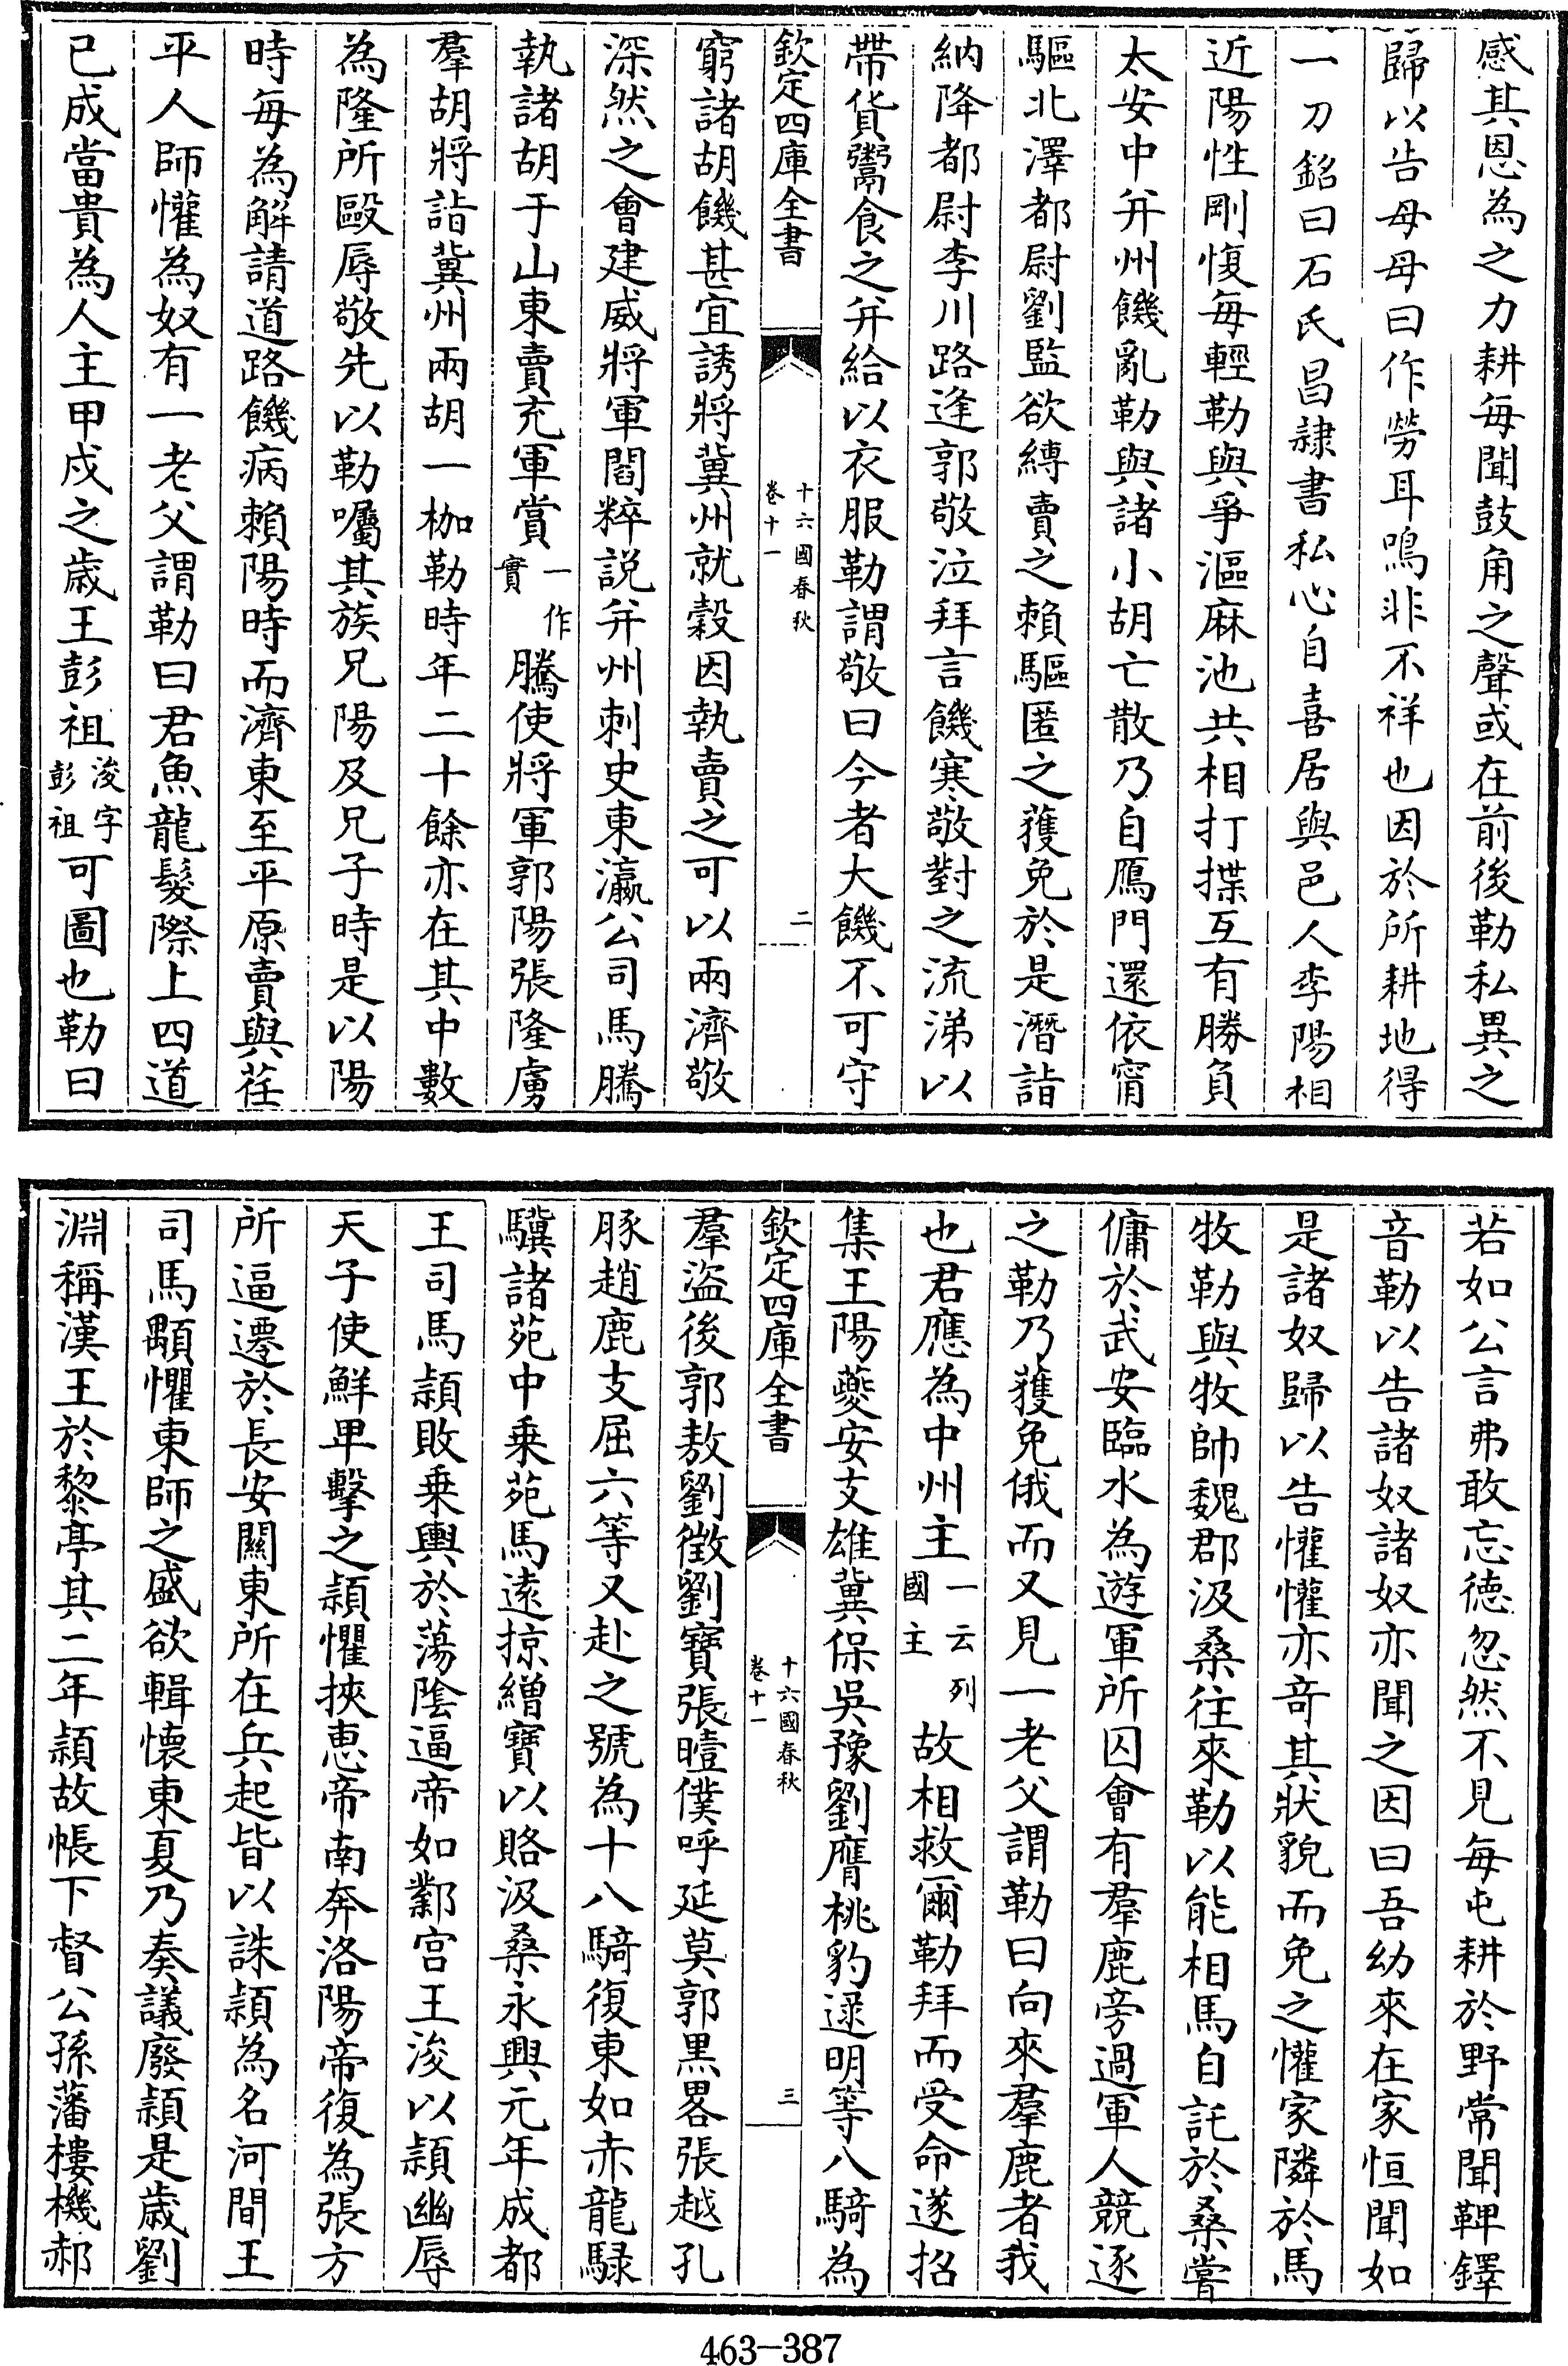 感其恩為之力耕每聞鼓角之聲或在前後勒私異之
歸以告母母曰作勞耳鳴非不祥也因於所耕地得
一刀銘曰石氏昌隷書私心自喜居與邑人李陽相
近陽性剛愎每輕勒與爭漚麻池共相打揲互有勝負
太安中并州饑亂勒與諸小胡亡散乃自鴈門還依甯
驅北澤都尉劉監欲縳賣之賴驅匿之獲免於是潛詣
納降都尉李川路逢郭敬泣拜言饑寒敬對之流涕以
帶貨鬻食之并給以衣服勒謂敬曰今者大饑不可守
欽定四庫全書
十六國春秋
卷十一
二
窮諸胡饑甚宜誘將冀州就穀因執賣之可以兩濟敬
深然之會建威將軍閻粹説并州刺史東瀛公司馬騰
執諸胡于山東賣充軍賞一作實騰使將軍郭陽張隆虜
羣胡將詣冀州兩胡一枷勒時年二十餘亦在其中數
為隆所毆辱敬先以勒囑其族兄陽及兄子時是以陽
時每為解請道路饑病賴陽時而濟東至平原賣與茌
平人師懽為奴有一老父謂勒曰君魚龍髮際上四道
已成當貴為人主甲戌之歲王彭祖浚字彭祖可圖也勒曰
若如公言弗敢忘德忽然不見每屯耕於野常聞鞞鐸
音勒以告諸奴諸奴亦聞之因曰吾幼來在家恒聞如
是諸奴歸以告懽懽亦竒其狀貌而免之懽家隣於馬
牧勒與牧帥魏郡汲桑往來勒以能相馬自託於桑嘗
傭於武安臨水為遊軍所囚會有羣鹿旁過軍人競逐
之勒乃獲免俄而又見一老父謂勒曰向來羣鹿者我
也君應為中州主一云列國主故相救爾勒拜而受命遂招
集王陽夔安支雄冀保吳豫劉膺桃豹逯明等八騎為
欽定四庫全書
十六國春秋
卷十一
三
羣盜後郭敖劉徴劉寶張曀僕呼延莫郭黒畧張越孔
豚趙鹿支屈六等又赴之號為十八騎復東如赤龍騄
驥諸苑中乗苑馬逺掠繒寶以賂汲桑永興元年成都
王司馬頴敗乗輿於蕩陰逼帝如鄴宫王浚以頴幽辱
天子使鮮卑擊之頴懼挾惠帝南奔洛陽帝復為張方
所逼遷於長安關東所在兵起皆以誅頴為名河間王
司馬顒懼東師之盛欲輯懐東夏乃奏議廢頴是歲劉
淵稱漢王於黎亭其二年頴故帳下督公孫藩樓機郝
463—387